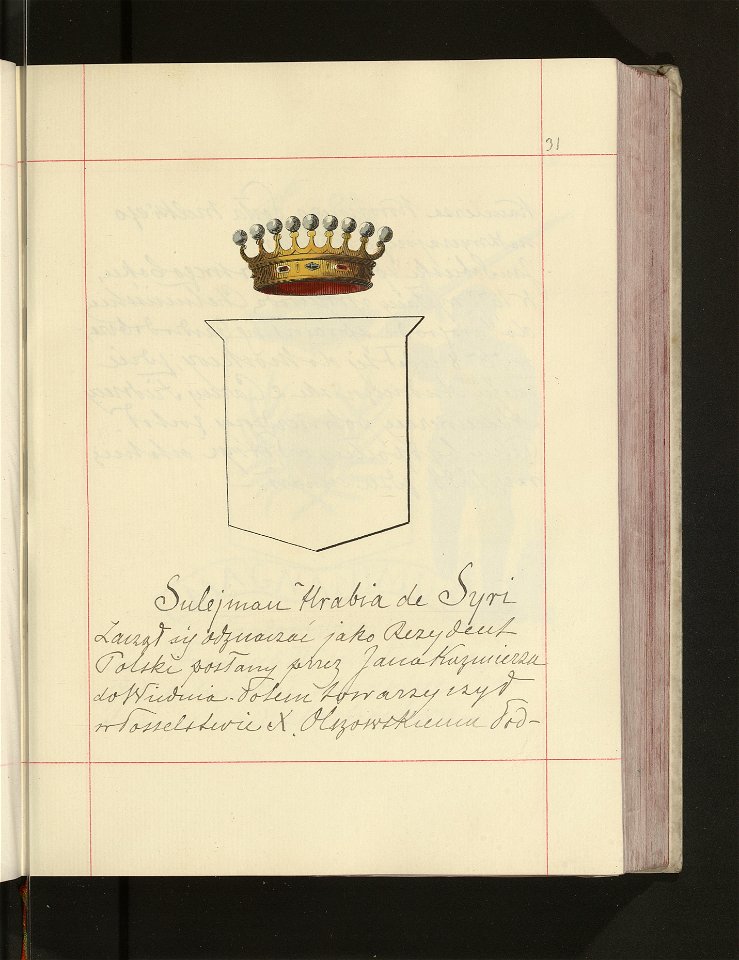 31
Sulejman Hrabia de Syri
Zaczął się odznaczać jako Rezydent
Polski posłany przez Jana Kazimierza
do Wiednia. Potem towarzyszył
w Posselstwie X. Olszowskiemu Pod-